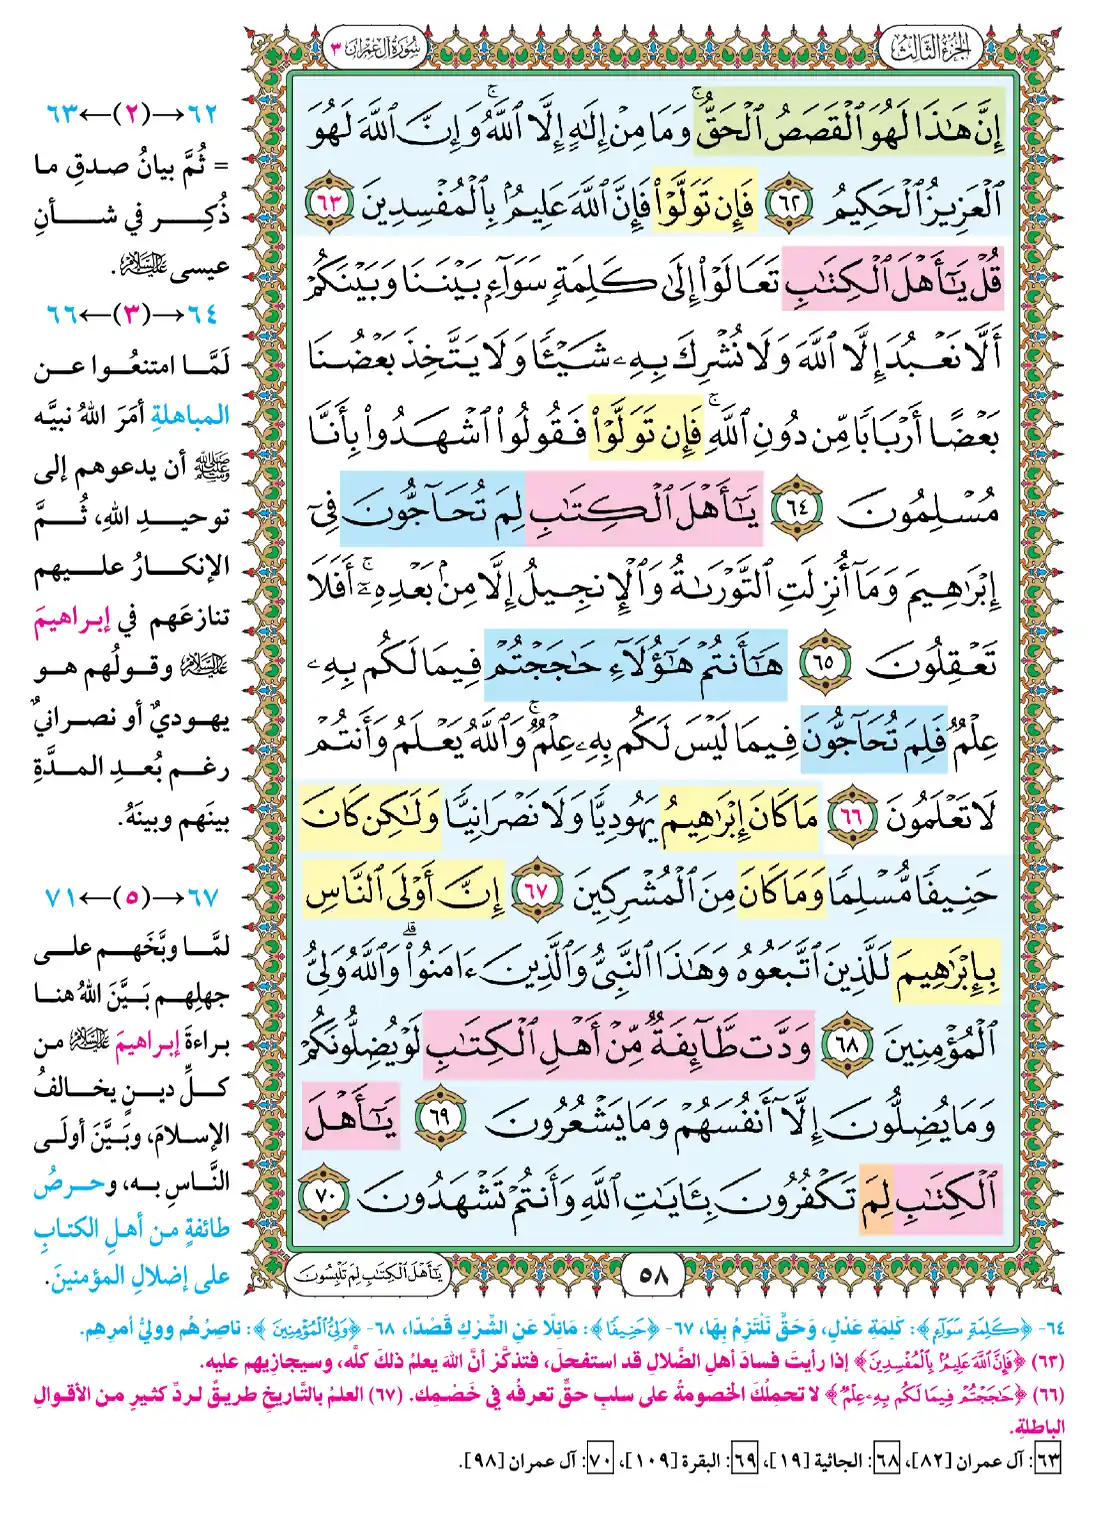 الجزء الثالث
سورة آل عمران ٣
إِنَّ هَٰذَا لَهُوَ ٱلْقَصَصُ ٱلْحَقُّ ۚ وَمَا مِنْ إِلَٰهٍ إِلَّا ٱللَّهُ ۚ وَإِنَّ ٱللَّهَ لَهُوَ
ٱلْعَزِيزُ ٱلْحَكِيمُ ٦٢ فَإِن تَوَلَّوْا۟ فَإِنَّ ٱللَّهَ عَلِيمٌۢ بِٱلْمُفْسِدِينَ ٦٣
قُلْ يَٰٓأَهْلَ ٱلْكِتَٰبِ تَعَالَوْا۟ إِلَىٰ كَلِمَةٍ سَوَآءٍۭ بَيْنَنَا وَبَيْنَكُمْ
أَلَّا نَعْبُدَ إِلَّا ٱللَّهَ وَلَا نُشْرِكَ بِهِۦ شَيْـًٔا وَلَا يَتَّخِذَ بَعْضُنَا
بَعْضًا أَرْبَابًا مِّن دُونِ ٱللَّهِ ۚ فَإِن تَوَلَّوْا۟ فَقُولُوا۟ ٱشْهَدُوا۟ بِأَنَّا
مُسْلِمُونَ ٦٤ يَٰٓأَهْلَ ٱلْكِتَٰبِ لِمَ تُحَآجُّونَ فِىٓ
إِبْرَٰهِيمَ وَمَآ أُنزِلَتِ ٱلتَّوْرَىٰةُ وَٱلْإِنجِيلُ إِلَّا مِنۢ بَعْدِهِۦٓ ۚ أَفَلَا
تَعْقِلُونَ ٦٥ هَٰٓأَنتُمْ هَٰٓؤُلَآءِ حَٰجَجْتُمْ فِيمَا لَكُم بِهِۦ
عِلْمٌ فَلِمَ تُحَآجُّونَ فِيمَا لَيْسَ لَكُم بِهِۦ عِلْمٌ ۚ وَٱللَّهُ يَعْلَمُ وَأَنتُمْ
لَا تَعْلَمُونَ ٦٦ مَا كَانَ إِبْرَٰهِيمُ يَهُودِيًّا وَلَا نَصْرَانِيًّا وَلَٰكِن كَانَ
حَنِيفًا مُّسْلِمًا وَمَا كَانَ مِنَ ٱلْمُشْرِكِينَ ٦٧ إِنَّ أَوْلَى ٱلنَّاسِ
بِإِبْرَٰهِيمَ لَلَّذِينَ ٱتَّبَعُوهُ وَهَٰذَا ٱلنَّبِىُّ وَٱلَّذِينَ ءَامَنُوا۟ ۗ وَٱللَّهُ وَلِىُّ
ٱلْمُؤْمِنِينَ ٦٨ وَدَّت طَّآئِفَةٌ مِّنْ أَهْلِ ٱلْكِتَٰبِ لَوْ يُضِلُّونَكُمْ
وَمَا يُضِلُّونَ إِلَّآ أَنفُسَهُمْ وَمَا يَشْعُرُونَ ٦٩ يَٰٓأَهْلَ
ٱلْكِتَٰبِ لِمَ تَكْفُرُونَ بِـَٔايَٰتِ ٱللَّهِ وَأَنتُمْ تَشْهَدُونَ ٧٠
٥٨
يَٰٓأَهْلَ ٱلْكِتَٰبِ لِمَ تَلْبِسُونَ
٦٢→(٢)←٦٣
= ثُمَّ بيانُ صدقِ ما
ذُكِر في شأنِ
عيسى عليه السلام.
٦٤→(٣)←٦٦
لَمَّا امتنعُوا عن
المباهلةِ أمَرَ اللهُ نبيَّه
ﷺ أن يدعوهم إلى
توحيدِ اللهِ، ثُمَّ
الإنكارُ عليهم
تنازعَهم في إبراهيمَ
عليه السلام وقولُهم هو
يهوديٌ أو نصرانيٌ
رغم بُعدِ المدَّةِ
بينَهم وبينَهُ.
٦٧→(٥)←٧١
لمَّا وبَّخَهم على
جهلِهم بَيَّنَ اللهُ هنا
براءةَ إبراهيمَ عليه السلام من
كلِّ دينٍ يخالفُ
الإسلامَ، وبَيَّنَ أولَى
النَّاسِ به، وحرصُ
طائفةٍ من أهلِ الكتابِ
على إضلالِ المؤمنينَ.
٦٤- ﴿كَلِمَةٍ سَوَآءٍ﴾: كَلِمَةِ عَدْلٍ، وَحَقٍّ نَلْتَزِمُ بِهَا، ٦٧- ﴿حَنِيفًا﴾: مَائِلًا عَنِ الشِّرْكِ قَصْدًا، ٦٨- ﴿وَلِيُّ ٱلْمُؤْمِنِينَ﴾: ناصِرُهُم ووليُّ أمرِهِم.
(٦٣) ﴿فَإِنَّ ٱللَّهَ عَلِيمٌۢ بِٱلْمُفْسِدِينَ﴾ إذا رأيتَ فسادَ أهلِ الضَّلالِ قد استفحلَ، فتذكَّرْ أنَّ اللهَ يعلمُ ذلكَ كلَّه، وسيجازِيهم عليه.
(٦٦) ﴿حَٰجَجْتُمْ فِيمَا لَكُم بِهِۦ عِلْمٌ﴾ لا تحملْكَ الخصومةُ على سلبِ حقٍّ تعرفُه في خَصْمِك. (٦٧) العلمُ بالتَّاريخِ طريقٌ لردِّ كثيرٍ من الأقوالِ
الباطلةِ.
٦٣: آل عمران [٨٢]، ٦٨: الجاثية [١٩]، ٦٩: البقرة [١٠٩]، ٧٠: آل عمران [٩٨].